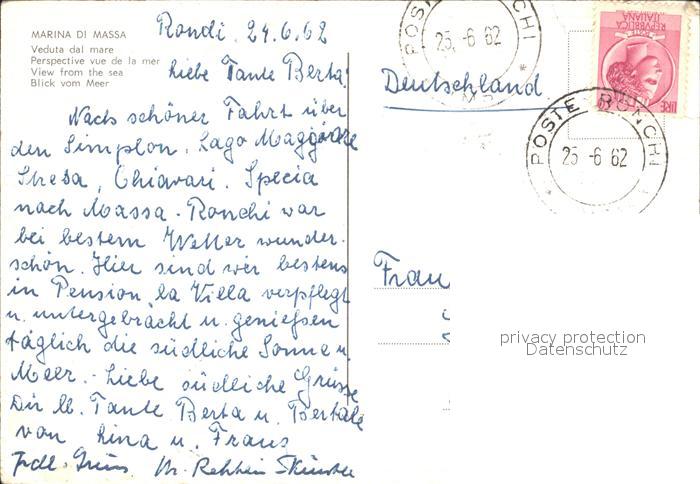 MARINA DI MASSA
Veduta dal mare
Perspective vue de la mer
View from the sea
Blick vom Meer
Rondi. 24.6.62
Liebe Tante Berta!
Nach schöner Fahrt über
den Simplon. Lago Maggiore
Stresa, Chiavari. Specia
nach Massa-Ronchi war
bei bestem Wetter wunder-
schön. Hier sind wir bestens
in Pension la Villa verpflegt
u. untergebracht u. genießen
täglich die südliche Sonne u.
Meer. - Liebe südliche Grüsse
Dir lb. Tante Berta u. Bertele
von Lina u. Franz
Frdl. Gruss
Deutschland
Frau
POSTE RONCHI
25 -6 62
POSTE RONCHI
25 -6 62
REPVBBLICA ITALIANA
POSTE
LIRE
privacy protection
Datenschutz